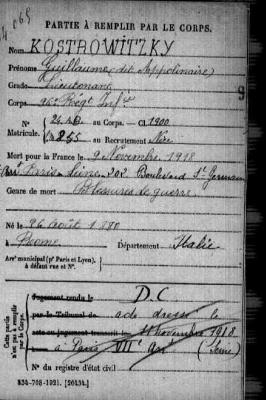 PARTIE À REMPLIR PAR LE CORPS.
Nom KOSTROWITZKY
Prénoms Guillaume (dit Appolinaire)
Grade Lieutenant
Corps 96e Regt Infie
N° au Corps. — Cl. 1900
Matricule. au Recrutement Nice
Mort pour la France le 9 Novembre 1918
Art Paris Seine 202 Boulevard St Germain
Genre de mort Blessures de guerre
Né le 26 Août 1880
à Rome Département Italie
Arrt municipal (pr Paris et Lyon), à défaut rue et N°.
Cette partie n'est pas à remplir par le Corps.
Jugement rendu le D.C
par le Tribunal de acte dressé le
acte ou jugement transcrit le 11 Novembre 1918
à Paris VIIe Art (Seine)
N° du registre d'état civil
534-708-1921. [26434.]